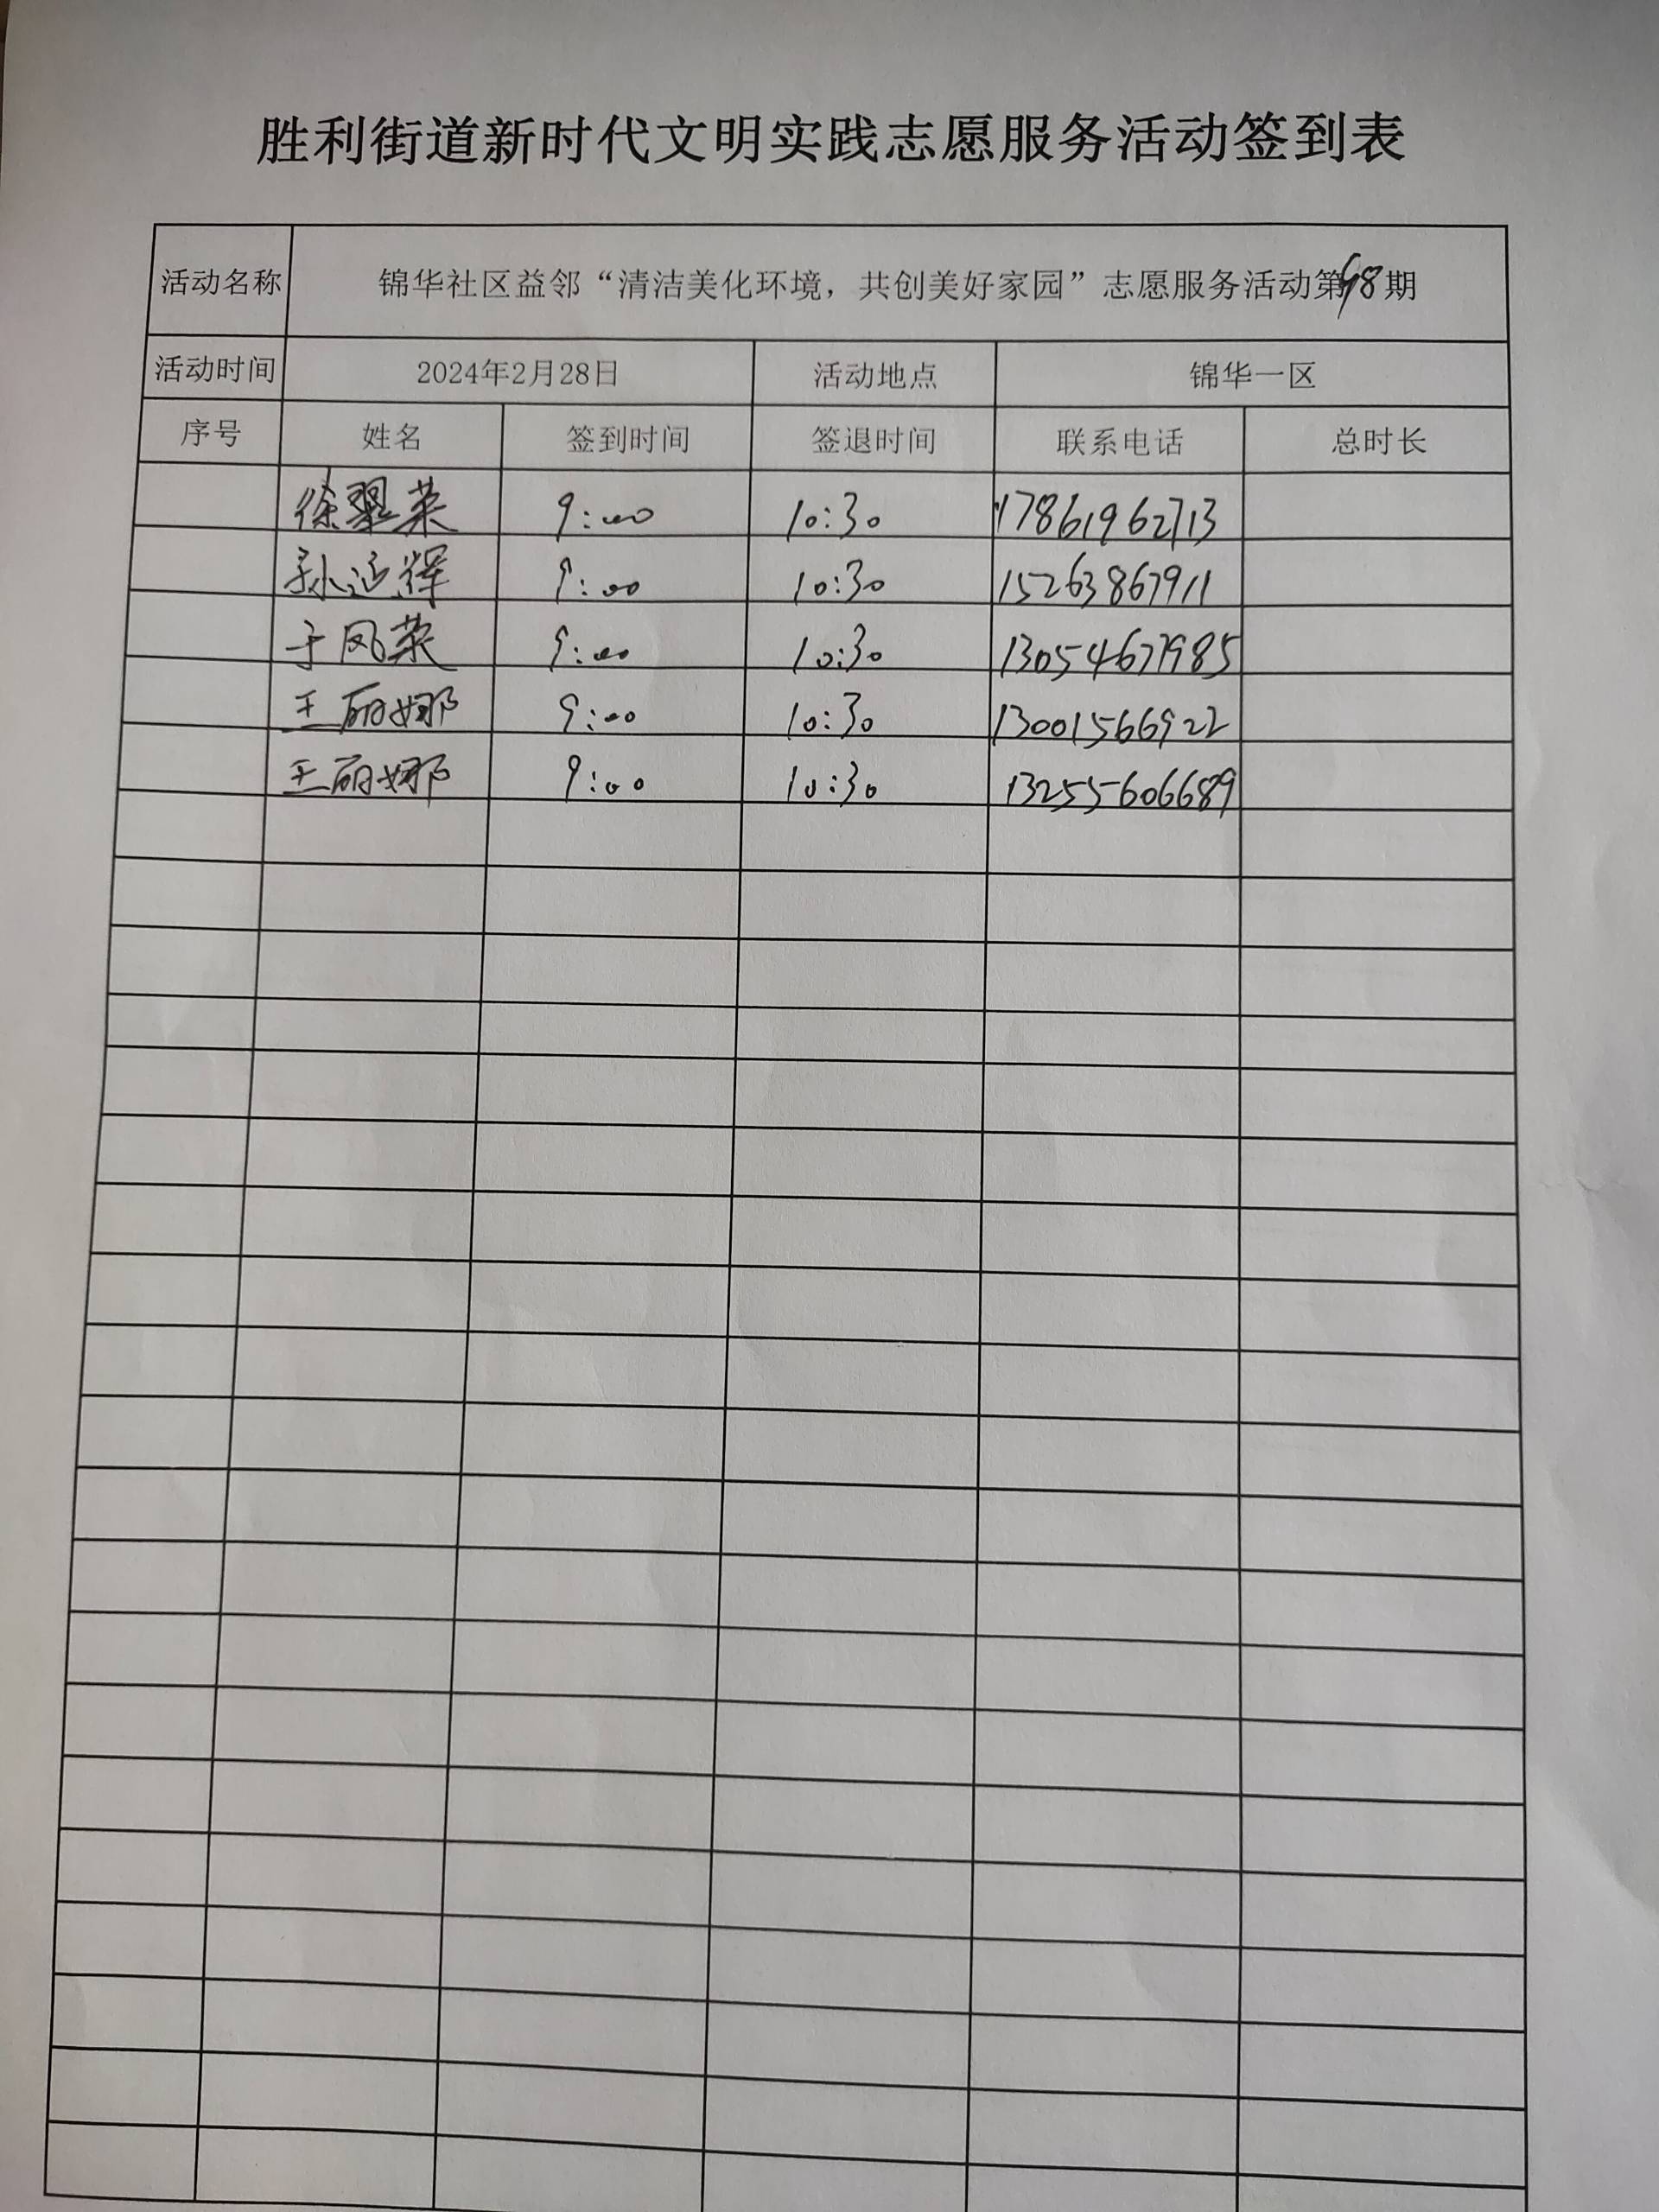 胜利街道新时代文明实践志愿服务活动签到表
活动名称 锦华社区益邻“清洁美化环境，共创美好家园”志愿服务活动第98期
活动时间 2024年2月28日 活动地点 锦华一区
序号 姓名 签到时间 签退时间 联系电话 总时长
徐翠荣 9:00 10:30 17861962713
孙运辉 9:00 10:30 15263867911
于凤荣 9:00 10:30 13054671985
王丽娜 9:00 10:30 13001566922
王丽娜 9:00 10:30 13255606689